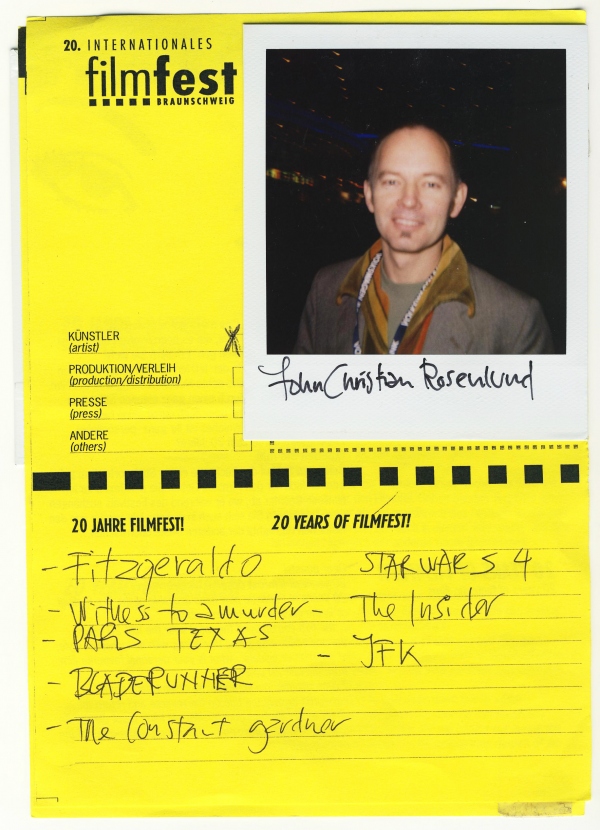 20. INTERNATIONALES
filmfest
BRAUNSCHWEIG
John Christian Rosenlund
KÜNSTLER
(artist)
X
PRODUKTION/VERLEIH
(production/distribution)
PRESSE
(press)
ANDERE
(others)
20 JAHRE FILMFEST!
20 YEARS OF FILMFEST!
- Fitzgeraldo
- Witness to a murder
- PARIS TEXAS
- BLADERUNNER
- The Constant gardner
STARWARS 4
- The Insider
- JFK